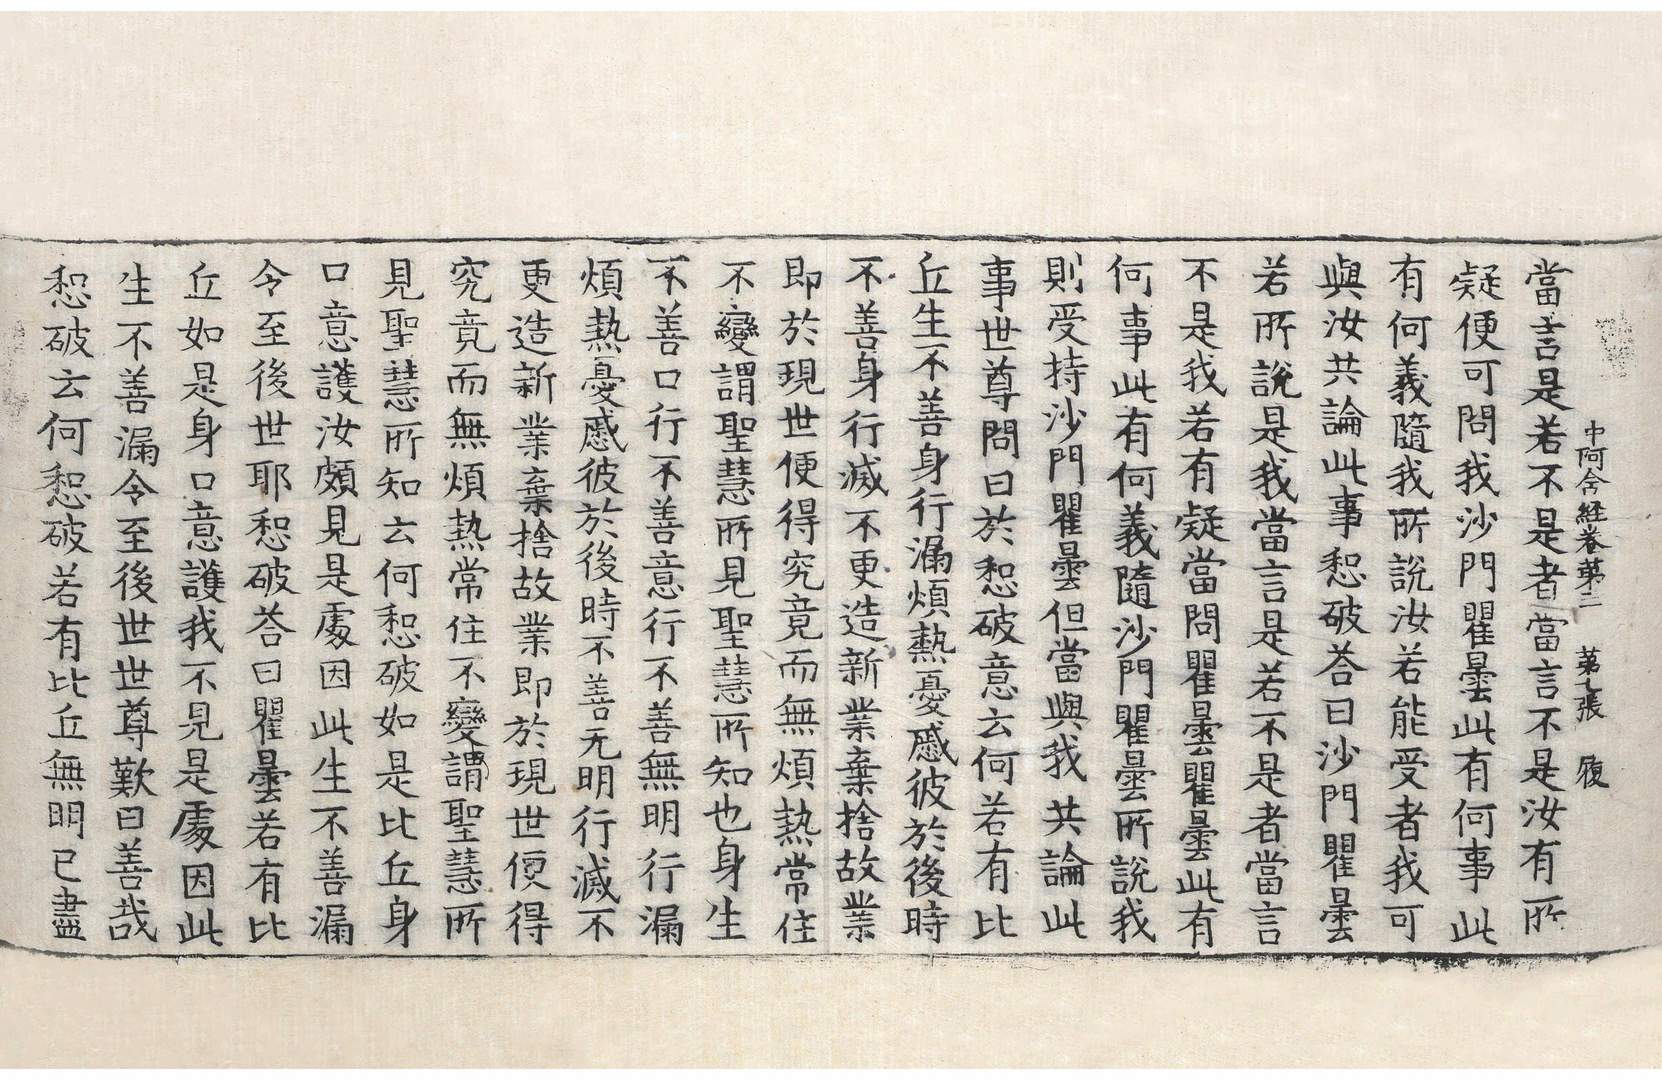 中阿含経卷苐三　苐七張　履
當言是若不是者當言不是汝有所
疑便可問我沙門瞿曇此有何事此
有何義隨我所說汝若能受者我可
與汝共論此事惒破荅曰沙門瞿曇
若所說是我當言是若不是者當言
不是我若有疑當問瞿曇瞿曇此有
何事此有何義隨沙門瞿曇所說我
則受持沙門瞿曇但當與我共論此
事世尊問曰於惒破意云何若有比
丘生不善身行漏煩熱憂慼彼於後時
不善身行滅不更造新業棄捨故業
即於現世便得究竟而無煩熱常住
不變謂聖慧所見聖慧所知也身生
不善口行不善意行不善無明行漏
煩熱憂慼彼於後時不善无明行滅不
更造新業棄捨故業即於現世便得
究竟而無煩熱常住不變謂聖慧所
見聖慧所知云何惒破如是比丘身
口意護汝頗見是處因此生不善漏
令至後世耶惒破荅曰瞿曇若有比
丘如是身口意護我不見是處因此
生不善漏令至後世世尊歎曰善哉
惒破云何惒破若有比丘無明已盡